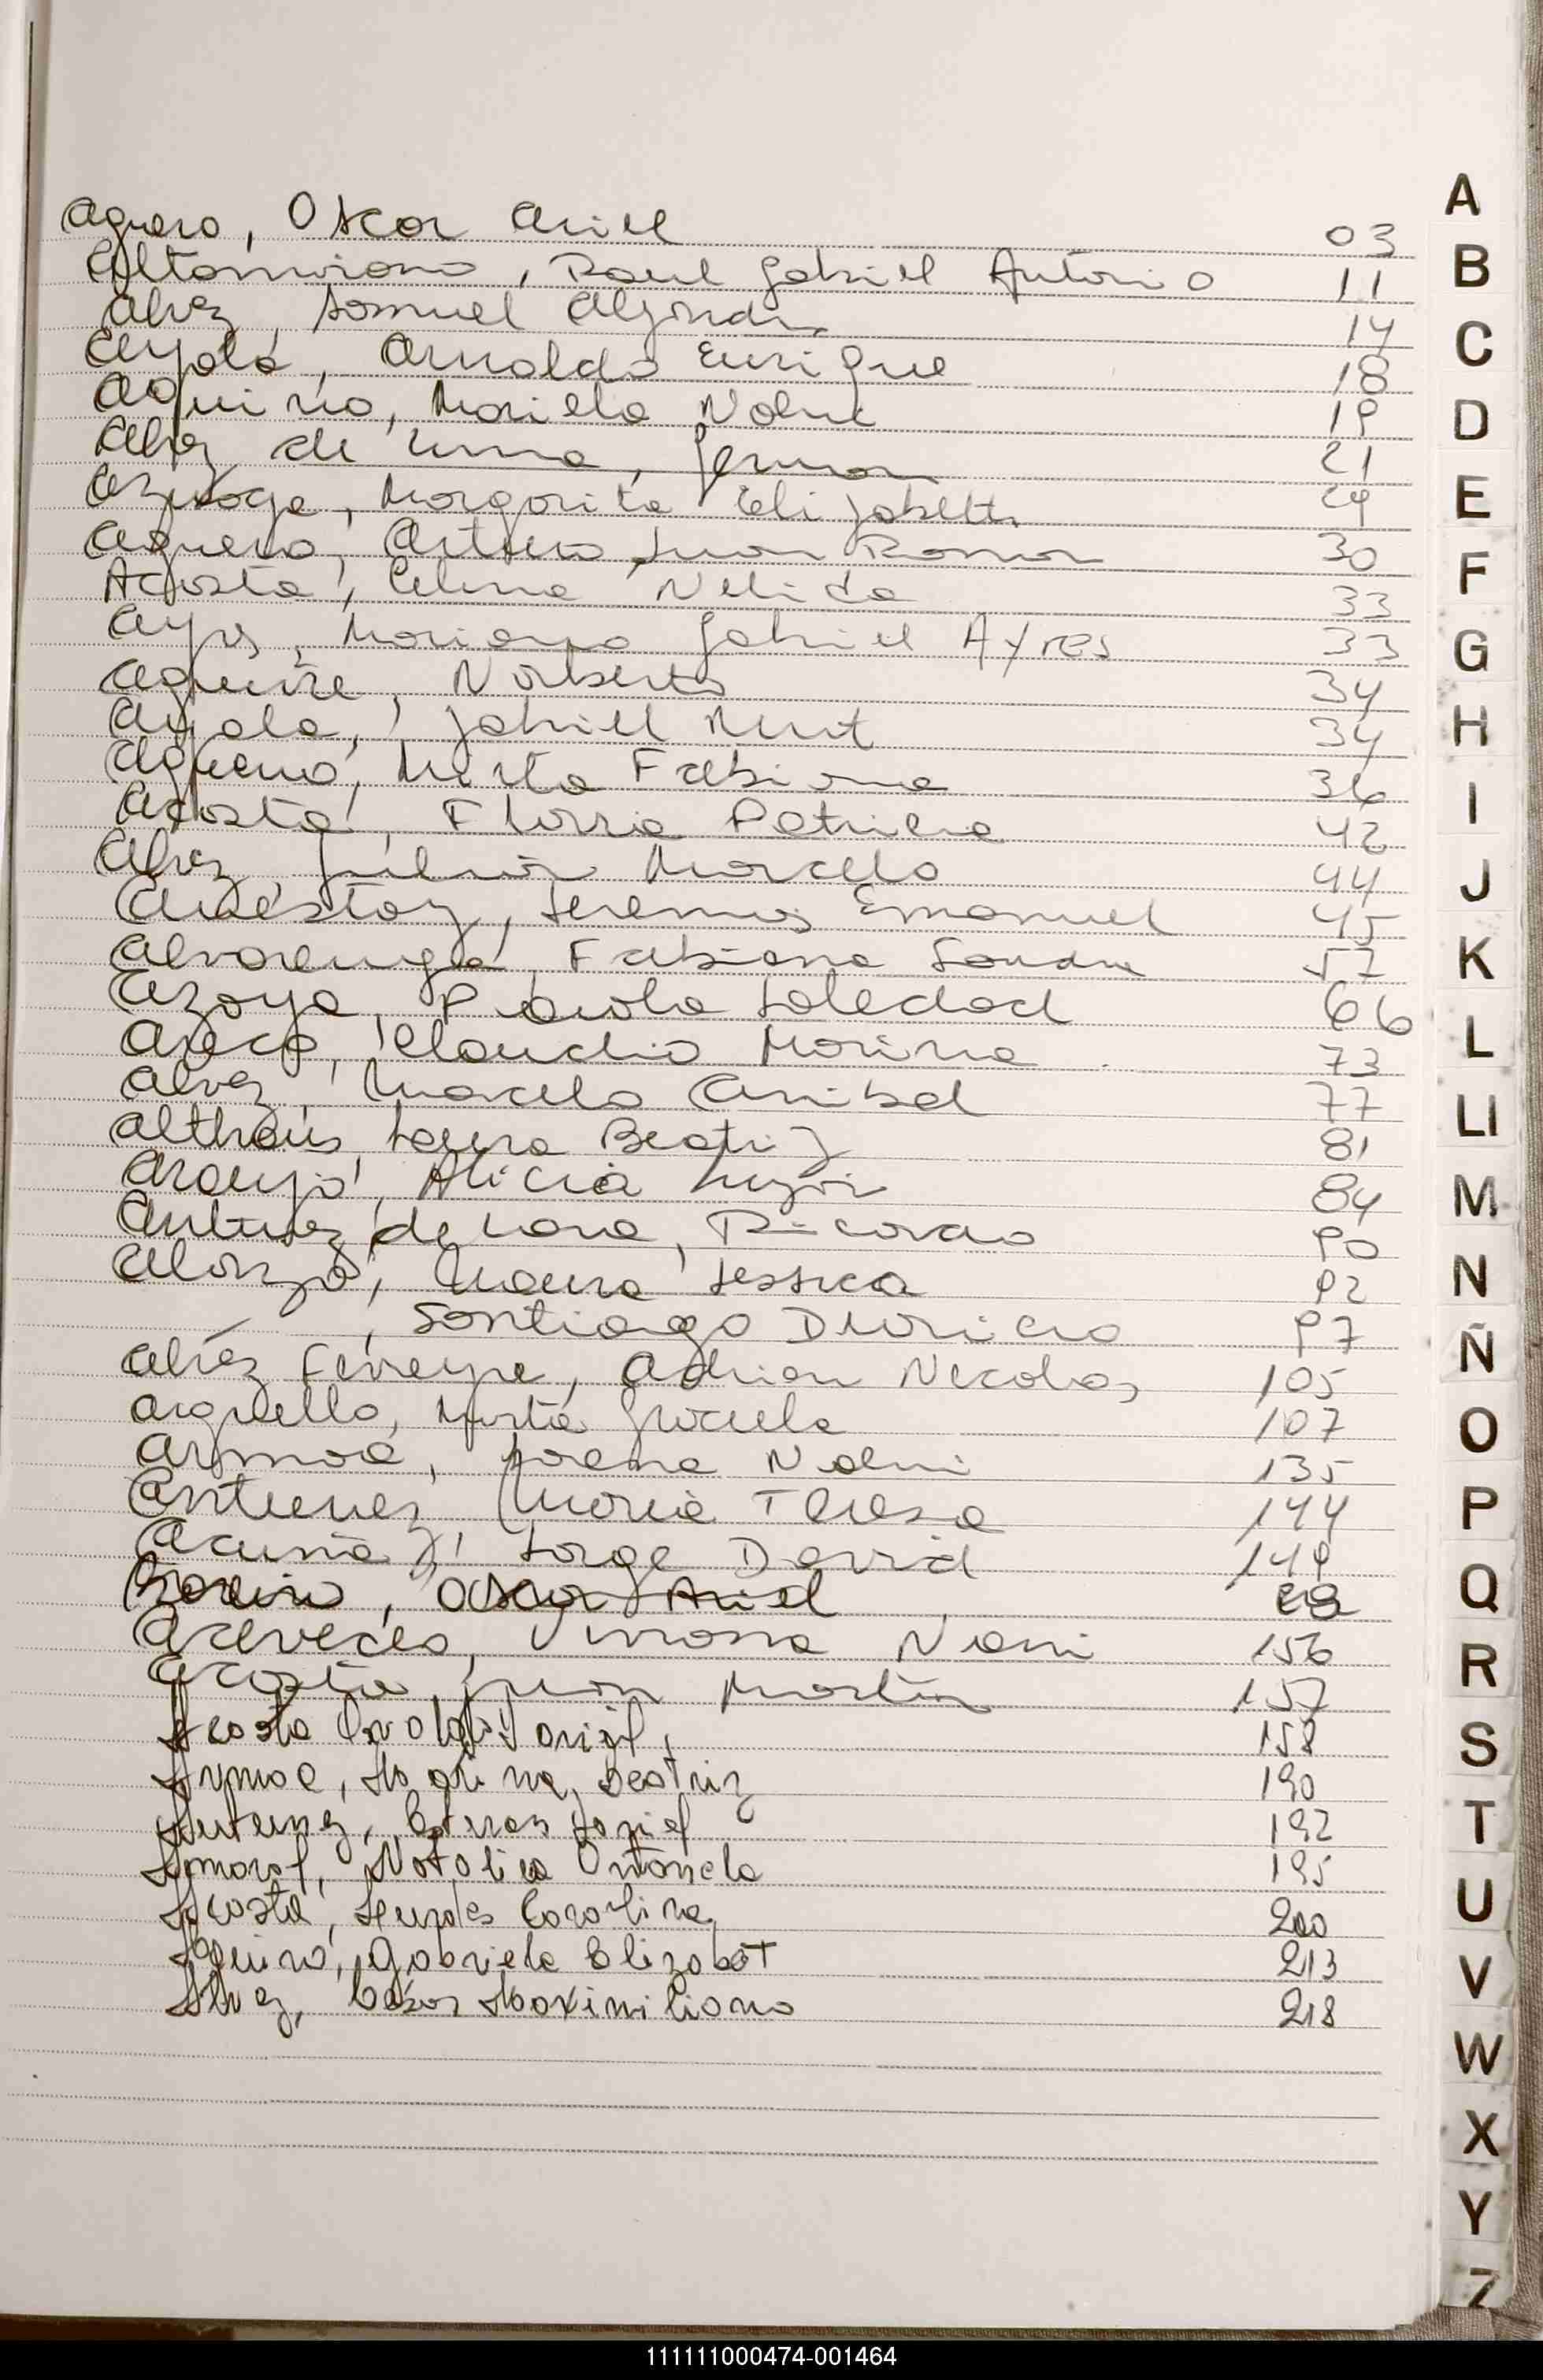 Aguero, Oscar Ariel 03
Altamirano, Raul Gabriel Antonio 11
Alvez, Samuel Alejandro 14
Ayala, Arnaldo Enrique 18
Aquino, Mariela Noemi 19
Alvez de Lima, German 21
Azuaga, Margarita Elizabeth 29
Aguero, Arturo Juan Ramon 30
Acosta, Celina Nelida 33
Ayres, Mariano Gabriel Ayres 33
Aguirre, Norberto 34
Ayala, Gabriel 34
Aguero, Mirta Fabiana 36
Acosta, Patricia 42
Alvez, Julian Marcelo 44
Jeremias Emanuel 45
Alvarenga, Fabiana Sandra 57
Azoya, Paola Soledad 66
Areco, Claudio 73
Alvez, Marcelo Anibal 77
Althaus, Laura Beatriz 81
Araujo, Alicia 84
Antunez de Lara, Ricardo 90
Alonzo, Maura Jessica 92
, Santiago 97
Alvez Ferreyra, Adrian Nicolas 105
Arguello, Mirta Graciela 107
Armoa, Lorena Noemi 135
Antunez, Maria Teresa 144
Acuña, Jorge David 149
Oscar Ariel
Acevedo, Viviana Noemi 156
Acosta, Juan Martin 157
Acosta Ariel, 158
Armoa, Marina, Beatriz 190
Antunez, 192
Amaral, Natalia Antonela 195
Acosta, Carolina 200
Aquino, Gabriela Elizabet 213
Alvez, Cesar Maximiliano 218
A
B
C
D
E
F
G
H
I
J
K
L
Ll
M
N
Ñ
O
P
Q
R
S
T
U
V
W
X
Y
Z
111111000474-001464